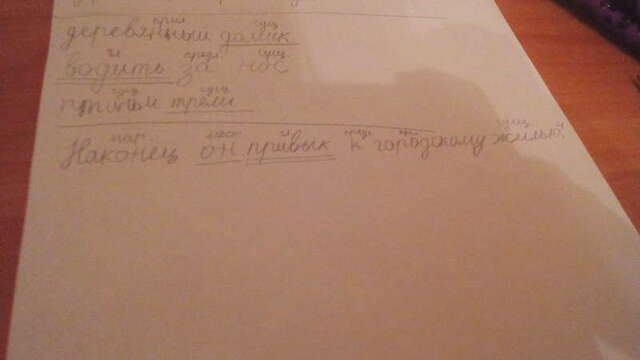 прил сущ
деревянный домик
гл предл сущ
водить за нос
сущ сущ
трели
нар мест гл предл прил сущ
Наконец он привык к городскому жилью.